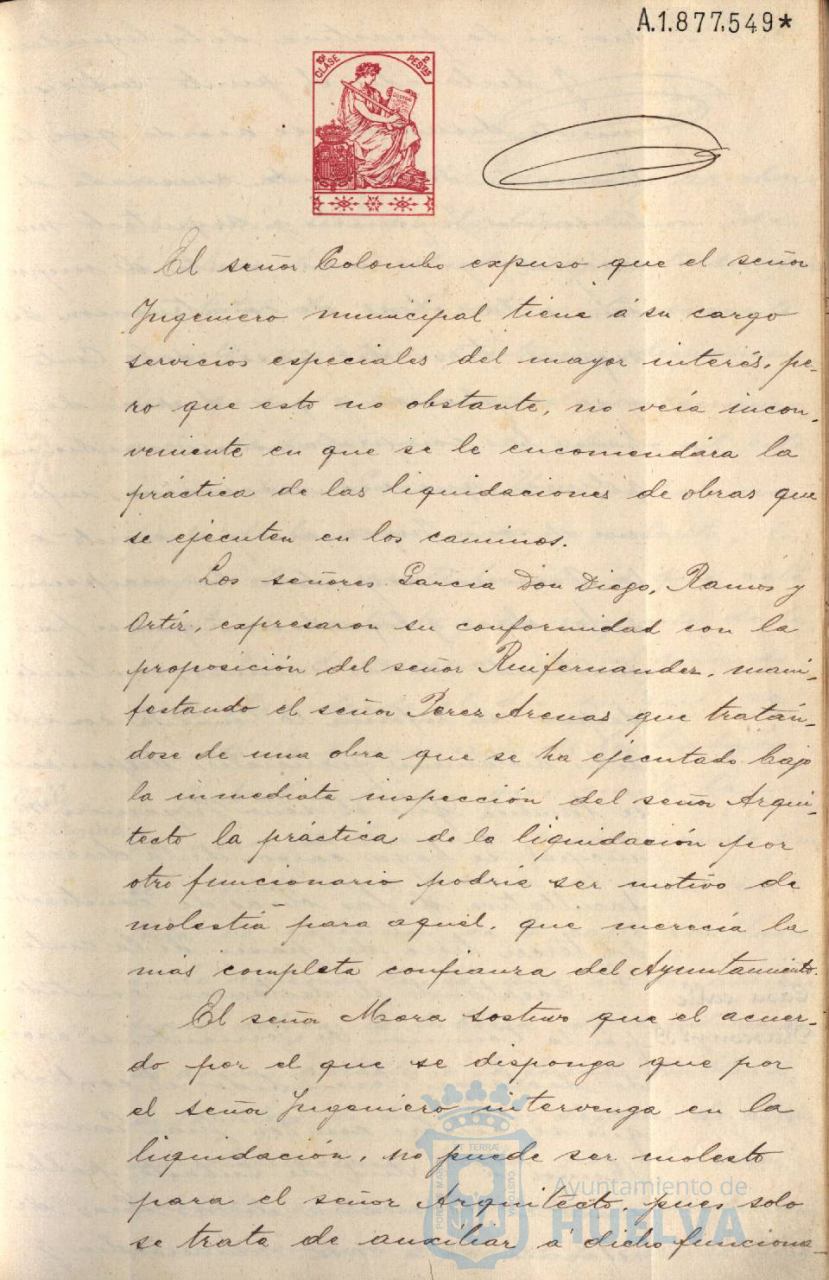 A.1.877.549*
10ª CLASE 2 PESTAS
El señor Colombo expuso que el señor
Ingeniero municipal tiene á su cargo
servicios especiales del mayor interés, pe-
ro que esto no obstante, no veía incon-
veniente en que se le encomendára la
práctica de las liquidaciones de obras que
se ejecuten en los caminos.
Los señores García Don Diego, Ramos y
Ortíz, expresaron su conformidad con la
proposición del señor Ruifernandez, mani-
festando el señor Perez Arenas que tratán-
dose de una obra que se ha ejecutado bajo
la inmediata inspección del señor Arqui-
tecto la práctica de la liquidación por
otro funcionario podría ser motivo de
molestia para aquel, que merecía la
más completa confianza del Ayuntamiento.
El señor Mora sostuvo que el acuer-
do por el que se disponga que por
el señor Ingeniero intervenga en la
liquidación, no puede ser molesto
para el señor Arquitecto, pues solo
se trata de auxiliar á dicho funciona-
Ayuntamiento de
HUELVA